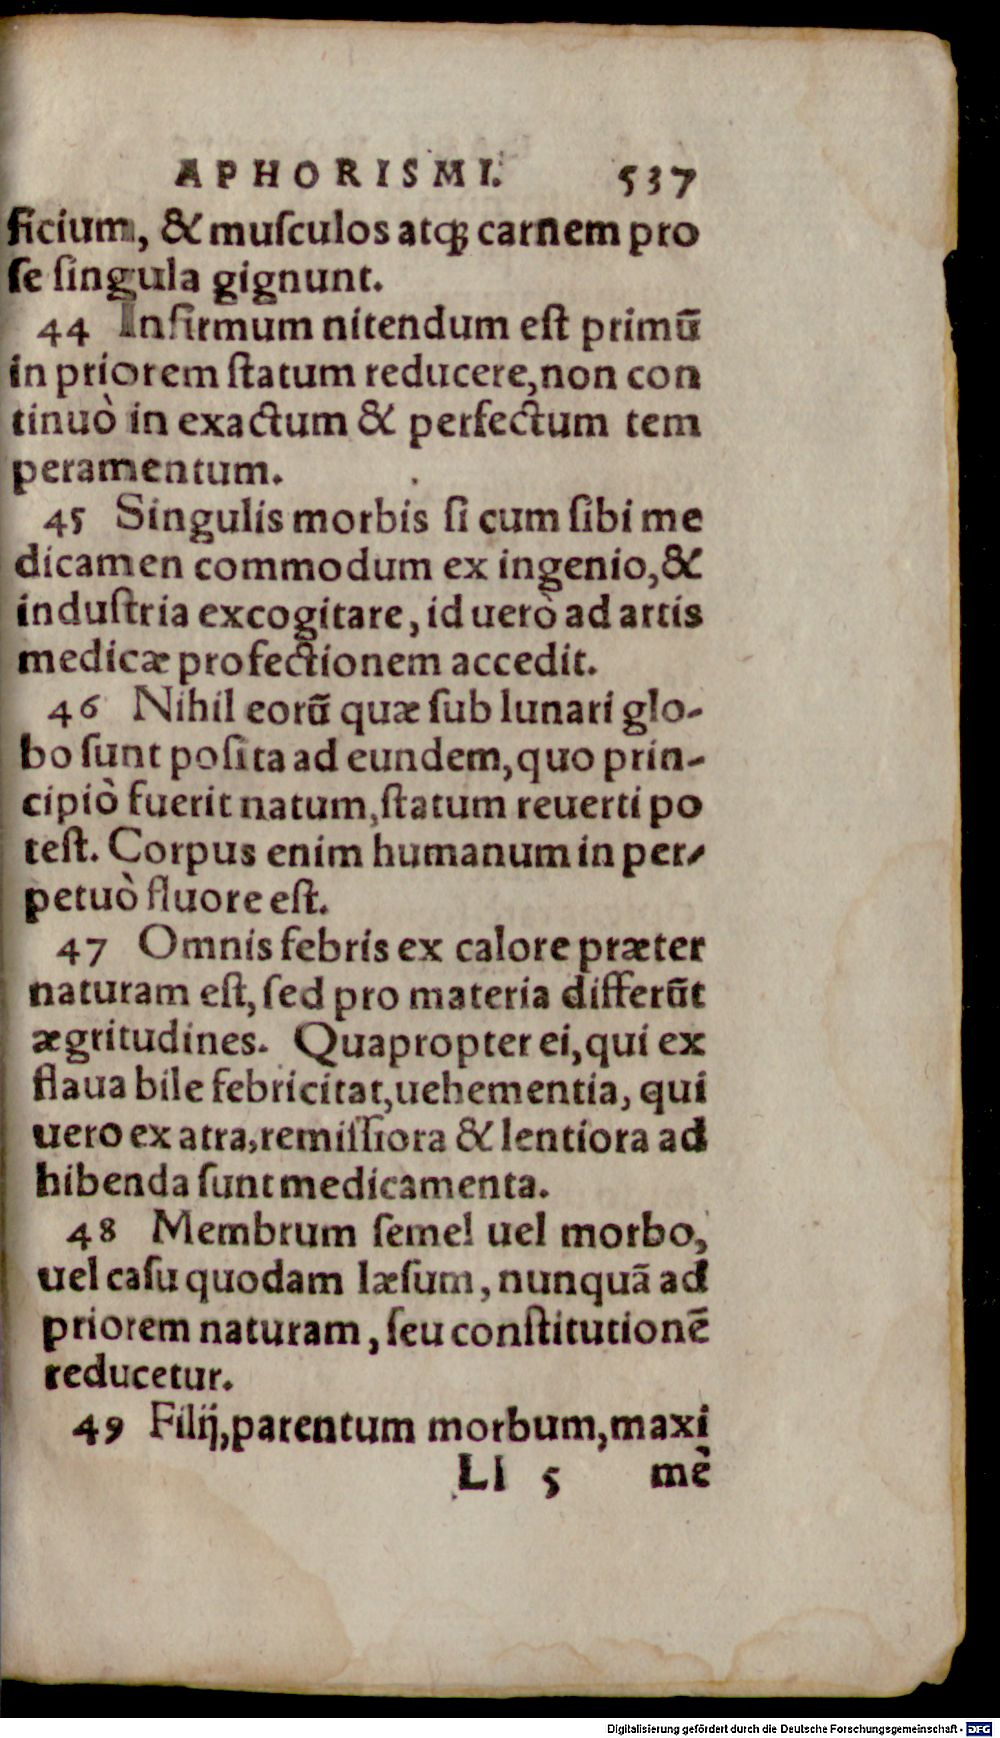 APHORISMI. 537
ficium, & muſculos atq́; carnem pro
ſe ſingula gignunt.
44 Infirmum nitendum eſt primũ
in priorem ſtatum reducere, non con
tinuò in exactum & perfectum tem
peramentum.
45 Singulis morbis ſi cum ſibi me
dicamen commodum ex ingenio, &
induſtria excogitare, id uerò ad artis
medicæ profectionem accedit.
46 Nihil eorũ quæ ſub lunari glo-
bo ſunt poſita ad eundem, quo prin-
cipiò fuerit natum, ſtatum reuerti po
teſt. Corpus enim humanum in per-
petuò fluore eſt.
47 Omnis febris ex calore præter
naturam eſt, ſed pro materia differũt
ægritudines. Quapropter ei, qui ex
flaua bile febricitat, uehementia, qui
uero ex atra, remiſſiora & lentiora ad
hibenda ſunt medicamenta.
48 Membrum ſemel uel morbo,
uel caſu quodam læſum, nunquã ad
priorem naturam, ſeu conſtitutionẽ
reducetur.
49 Filij, parentum morbum, maxi
Ll 5 mè
Digitalisierung gefördert durch die Deutsche Forschungsgemeinschaft - DFG